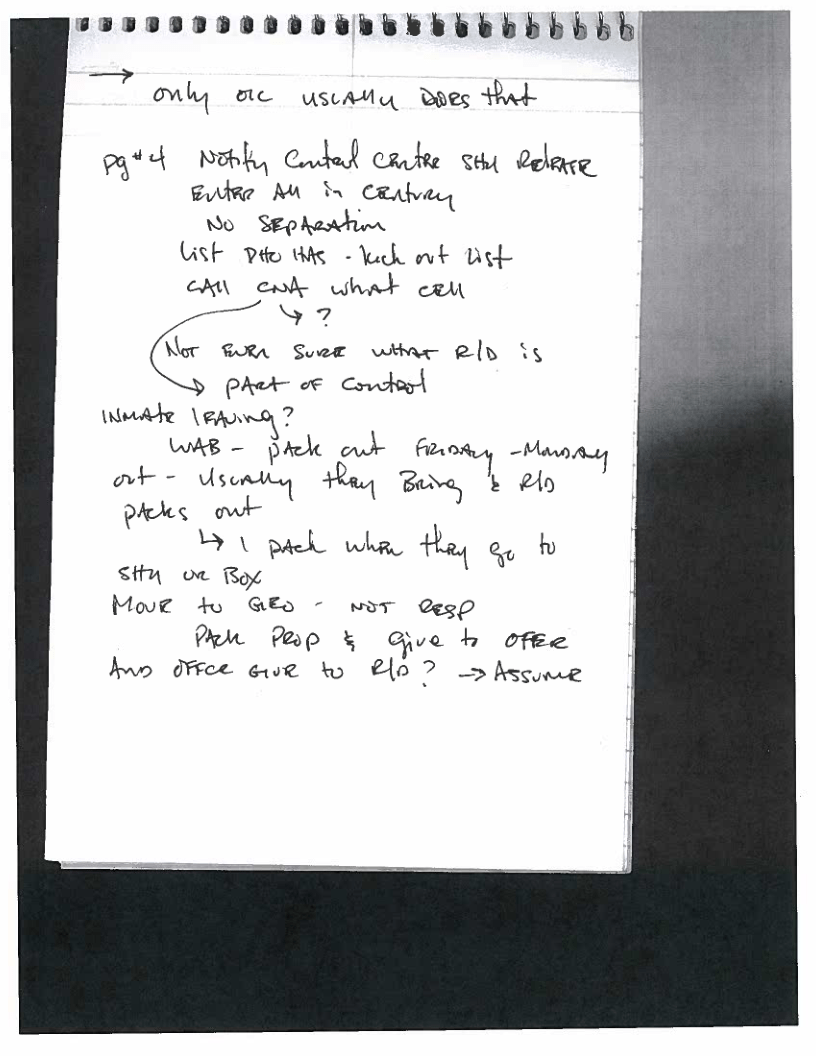 → only OIC USUALLY DOES that
Pg #4 Notify Control Centre SHU RELEASE
ENTER All in CENtury
No SEpARAtion
List DHO HAS - kick out List
CALL CNA what CELL
↳ ?
Not EVEN SURE WHAT R/D is
→ PArt OF Control
INMAte lEAving?
WAB - pAck out FRIDAY - MONDAY
out - Usually they Bring & R/D
pAcks out
↳ I pAck when they go to
SHU OR Box
MOVE to GEO - NOT RESP
PAck PROP & give to OFFER
AND OFFCE GIVE to R/D? → ASSUME